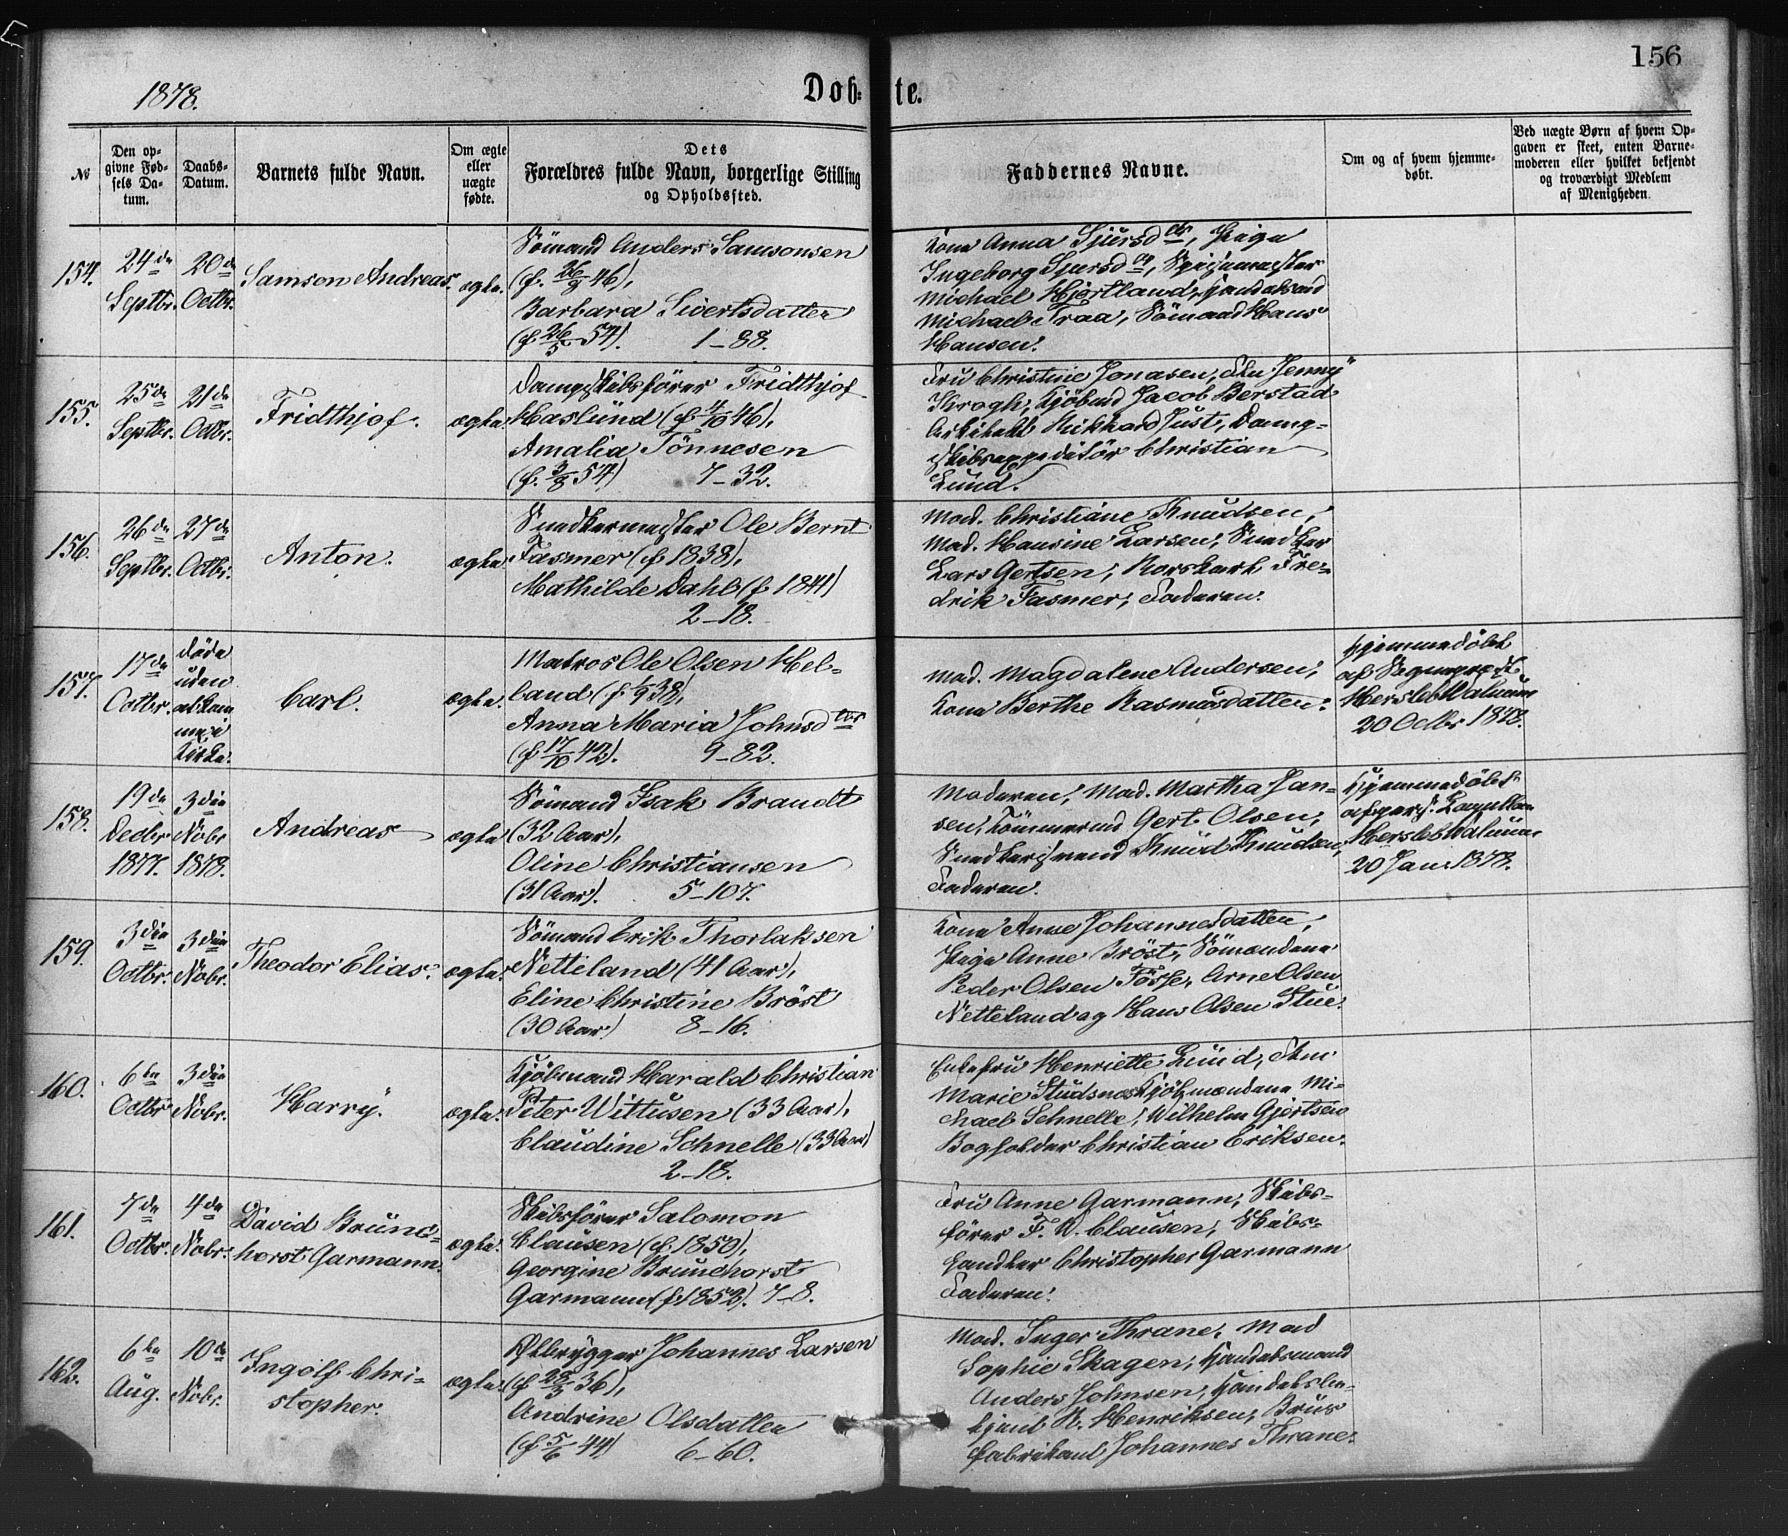 156
1878.
Døb- te.
No
Den op-
givne Fød-
sels Da-
tum.
Daabs-
Datum.
Barnets fulde Navn.
Om ægte
eller
uægte
fødte.
Dets
Forældres fulde Navn, borgerlige Stilling
og Opholdssted.
Faddernes Navne.
Om og af hvem hjemme-
døbt.
Ved uægte Børn af hvem Op-
gaven er skeet, enten Barne-
moderen eller hvilket bekjendt
og troværdigt Medlem
af Menigheden.
154.
24de
Septbr.
20de
Octbr.
Samson Andreas.
ægte.
Sömand Anders Samsonsen
(f. 26/9 46),
Barbara Sivertsdatter
(f. 26/5 54). 1-88.
Kone Anna Sjursdtr, Pige
Ingeborg Sjursdtr,
Michael Hjertland, Handelsmd
Michael Traa, Sömand Hans
Hansen.
155.
25de
Septbr.
21de
Octbr.
Fridthjof.
ægte.
Dampskibsförer Fridthjof
Haslund (f. 4/10 46),
Amalia Tönnesen
(f. 3/8 54) 7-32.
Fru Christine Jonasen, Frk Jenny
Krogh, Kjöbmd Jacob Berstad
Arkitekt Rikhard Just, Damp-
skibsexpeditör Christian
Lund.
156.
26de
Septbr.
27de
Octbr.
Anton.
ægte.
Snedkermester Ole Bernt
Fasmer (f. 1838),
Mathilde Dahl (f 1841)
2-18.
Mad. Christiane Knudsen,
Mad. Hansine Larsen, Snedker
Lars Gertsen, Fre-
drik Fasmer, Faderen.
157.
17de
Octbr.
døde
uden
at kom
me i
Kirke.
Carl.
ægte.
Matros Ole Olsen Hel-
land (f 1/9 38),
Anna Maria Johnsdtr
(f 17/10 42). 9-82.
Mad. Magdalene Andersen,
Kone Berthe Rasmusdatter.
Hjemmedöbt
af Sognepræst
Hersleb Walnum
20 Octbr 1878.
158.
19de
Decbr
1877.
3die
Novbr
1878.
Andreas
ægte
Sömand Isak Brandt
(32 Aar),
Oline Christiansen
(31 Aar). 5-107.
Moderen, Mad. Martha Jan-
sen, Tömmermd Gert Olsen,
Snedkersvend Knud Knudsen,
Faderen.
Hjemmedöbt
af pers. Kapellan
Hersleb Walnum
20 Jan. 1878.
159.
3die
Octbr.
3die
Nobr.
Theodor Elias.
ægte.
Sömand Erik Thorlaksen
Netteland (41 Aar),
Eline Christine Bröst
(30 Aar) 8-16.
Kone Anne Johannesdatter,
Pige Anne Bröst, Sömændene
Peder Olsen Fosse, Arne Olsen
Netteland og Hans Olsen Stue.
160.
6te
Octbr
3die
Nobr.
Harry.
ægte.
Kjöbmand Harald Christian
Peter Wittusen (33 Aar),
Claudine Schnelle (33 Aar)
2-18.
Enkefru Henriette Lund, Frk.
Marie Kjöbmændene Mi-
chael Schnelle, Wilhelm Gjertsen
Bogholder Christian Eriksen.
161.
7de
Octbr.
4de
Nobr.
David Brunc-
horst Garmann.
ægte.
Skibsförer Salomon
Clausen (f. 1850),
Georgine Brunchorst
Garmann (f. 1852). 7-8.
Fru Anne Garmann, Skibs-
förer F. D. Clausen, Skibs-
handler Christopher Garmann
Faderen.
162.
6te
Aug.
10de
Nobr.
Ingolf Chri-
stopher.
ægte.
Ølbrygger Johannes Larsen
(f 28/3 36),
Andrine Olsdatter
(f 5/6 44) 6-60.
Mad. Inger Thrane, Mad
Sophie Skagen, Handelsmand
Anders Johnsen, Handelsbe-
tjent N. Henriksen, Brus-
fabrikant Johannes Thrane.